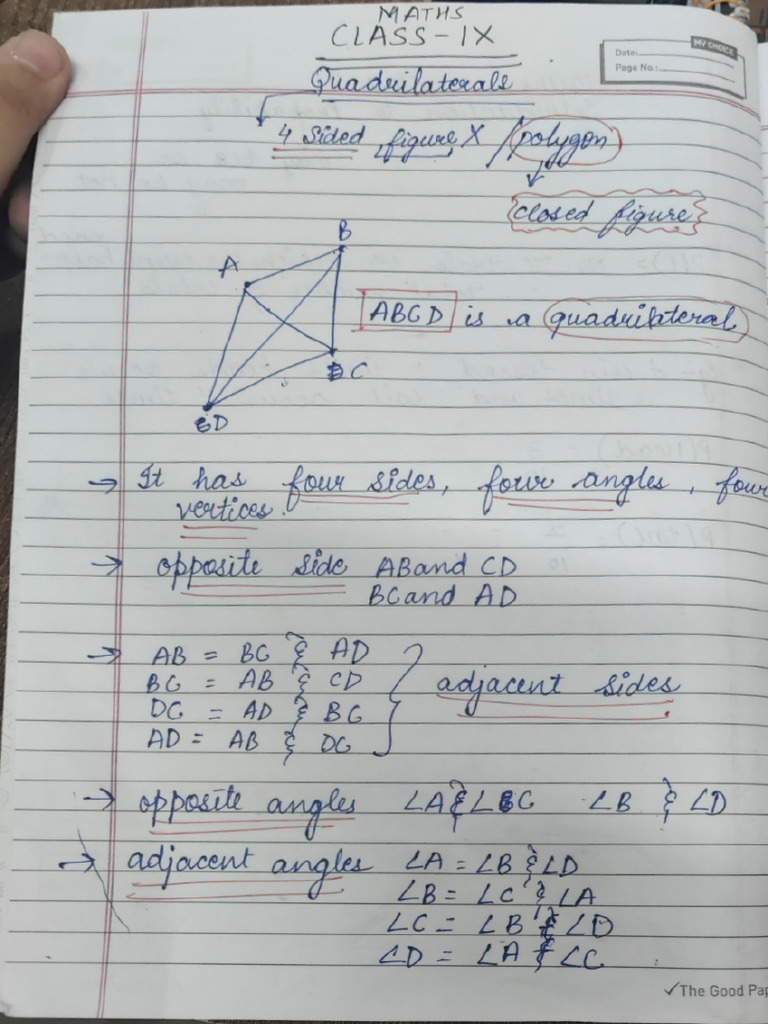 MATHS
CLASS-IX
MY CHOICE
Date:
Page No.:
Quadrilaterals
4 sided figure X / polygon
closed figure
B
A
ABCD is a quadrilateral
C
D
→ It has four sides, four angles, four
vertices.
→ opposite side AB and CD
BC and AD
→ AB = BC & AD
BC = AB & CD
adjacent sides
DC = AD & BC
AD = AB & DC
→ opposite angles ∠A & ∠C ∠B & ∠D
→ adjacent angles ∠A = ∠B & ∠D
∠B = ∠C & ∠A
∠C = ∠B & ∠D
∠D = ∠A & ∠C
✓The Good Pap